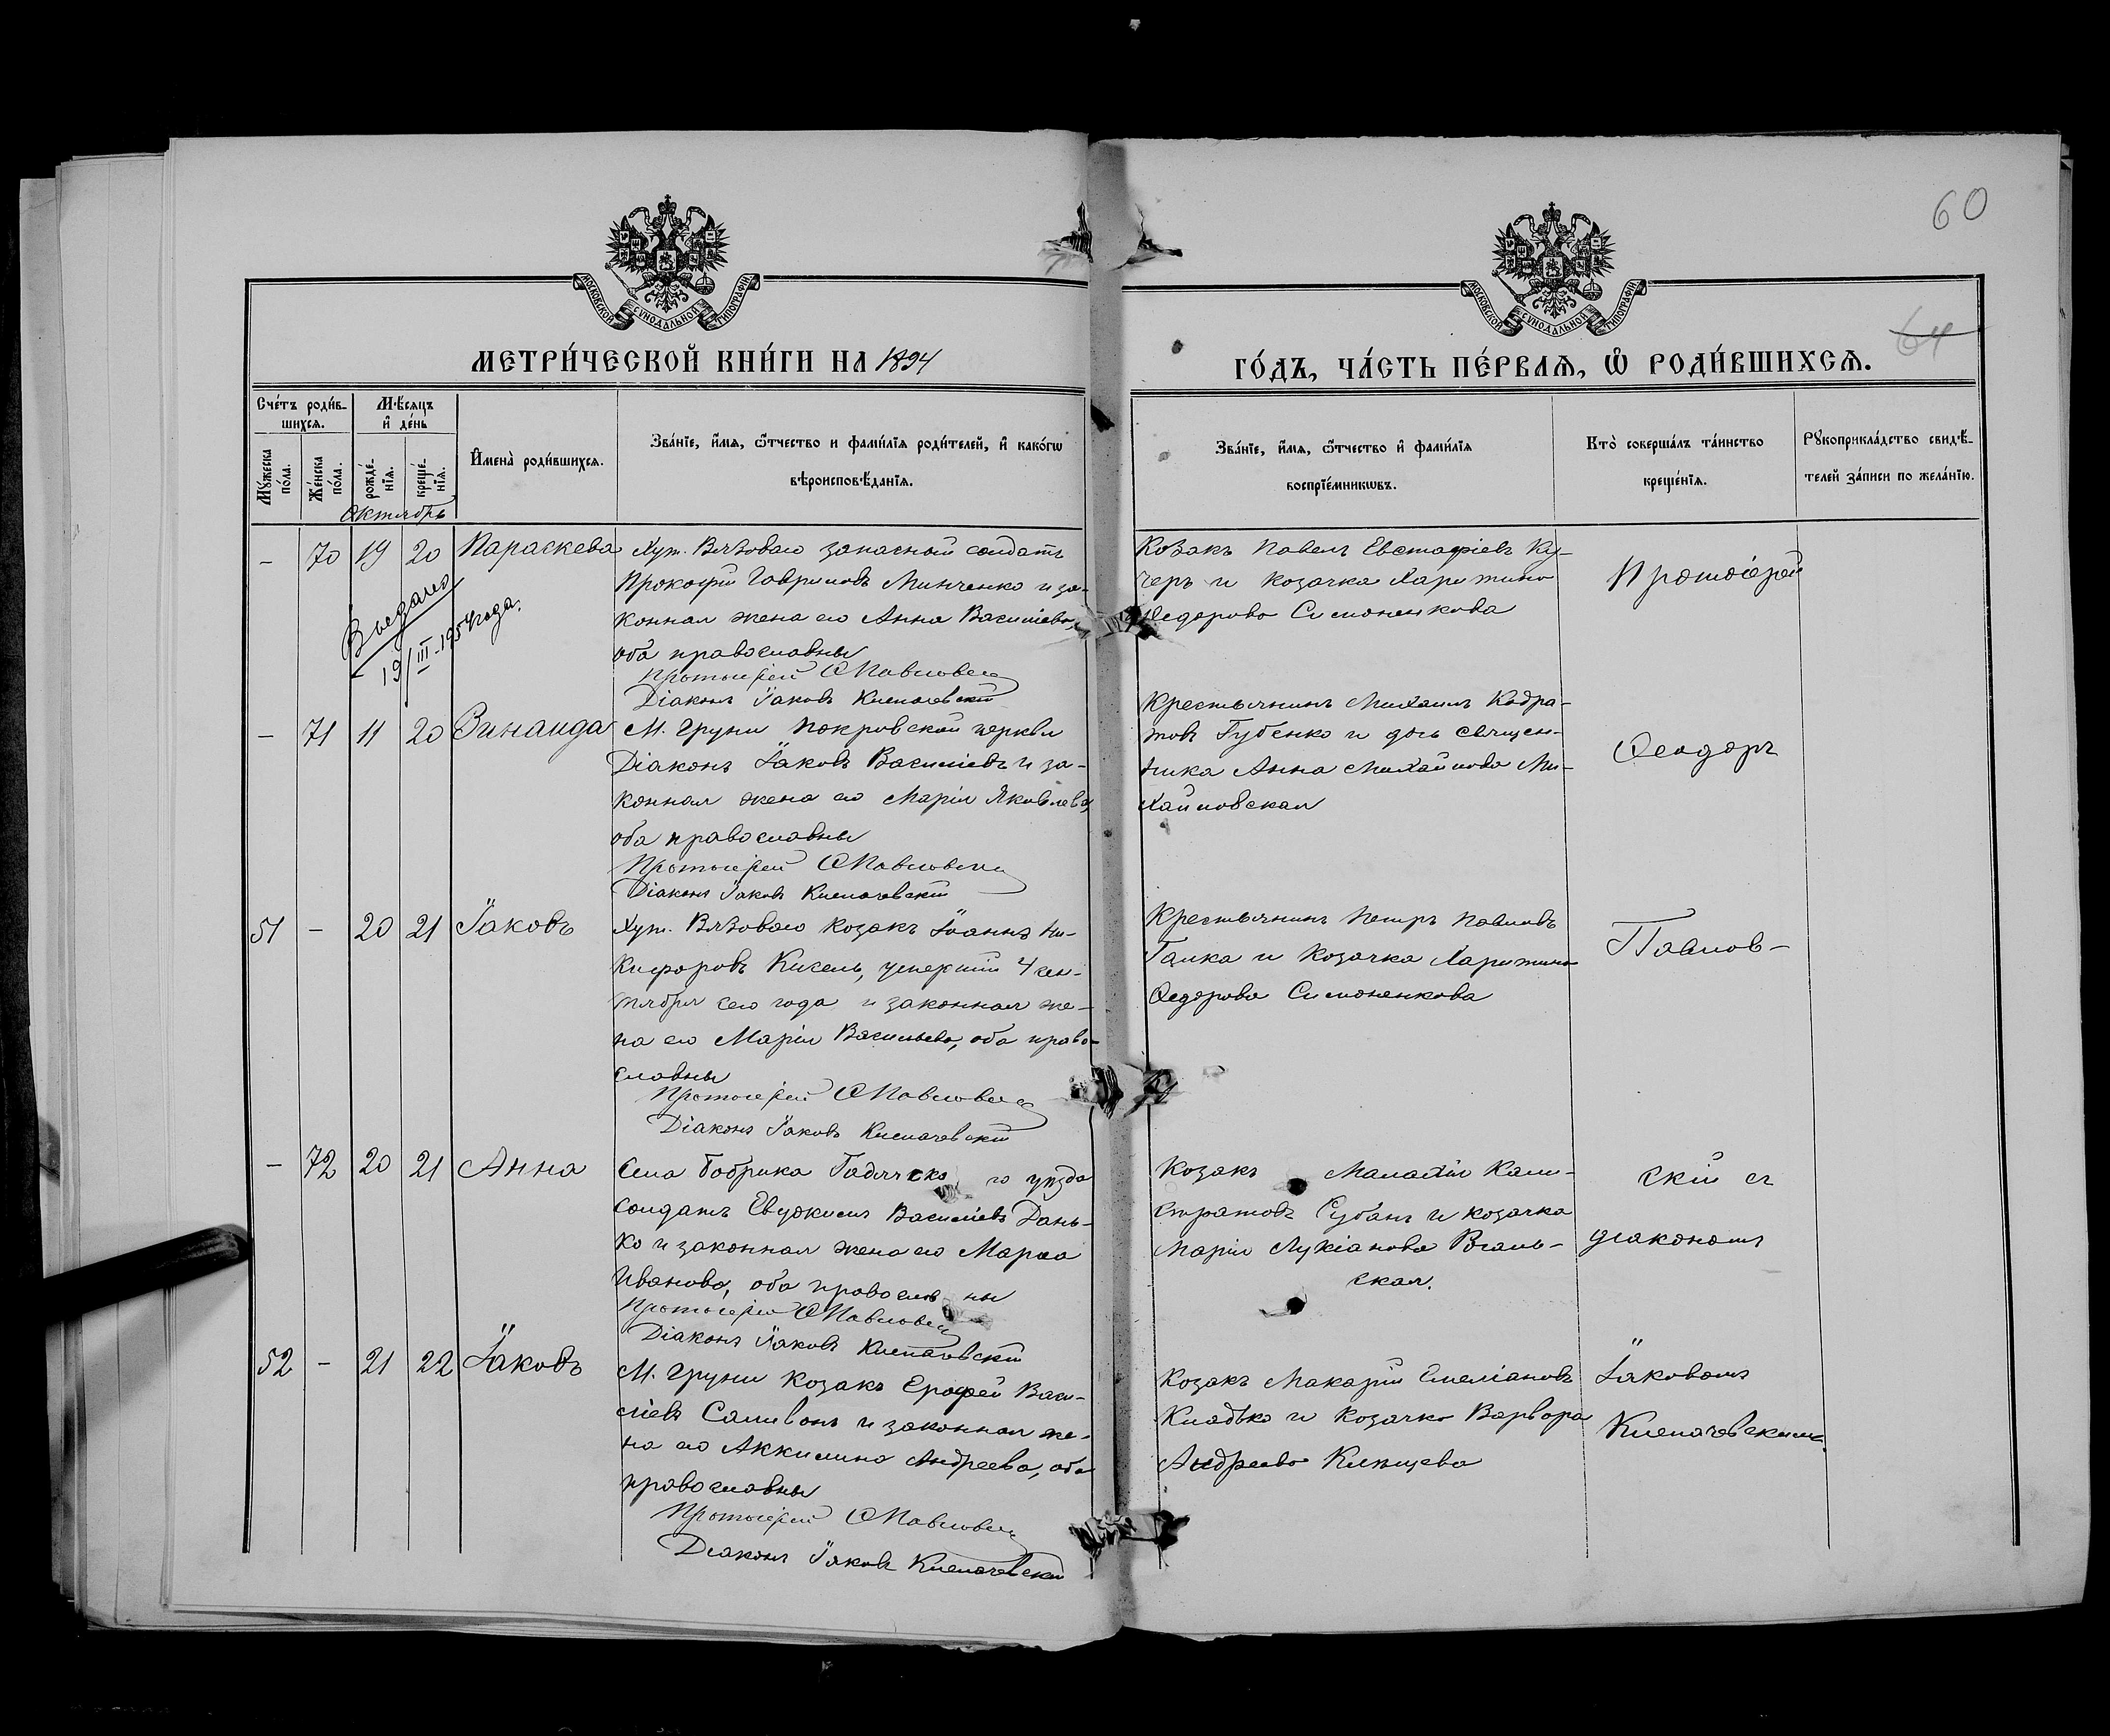 60
64
МОСКОВСКОЙ СѴНОДАЛЬНОЙ ТИПОГРАФІИ
МОСКОВСКОЙ СѴНОДАЛЬНОЙ ТИПОГРАФІИ
МЕТРИ́ЧЕСКОЙ КНИ́ГИ НА 1894
ГО́ДЪ, ЧА́СТЬ ПЕ́РВАѦ, Ѡ҆ РОДИ́ВШИХСѦ.
Сче́тъ роди́в-
шихсѧ.
Мꙋ́жеска по́ла.
Же́нска по́ла.
Мѣ́сѧцъ
и҆ де́нь
рожде́-
нїѧ.
креще́-
нїѧ.
И҆мена̀ роди́вшихсѧ.
Зва́нїе, и҆́мѧ, ѻ҆́тчество и фами́лїѧ роди́телей, и҆ како́гѡ
вѣроисповѣ́данїѧ.
Зва́нїе, и҆́мѧ, ѻ҆́тчество и҆ фами́лїѧ
воспрїе́мникѡвъ.
Кто̀ соверша́лъ та́инство
креще́нїѧ.
Рꙋкоприкла́дство свидѣ́-
телей за́писи по жела́нїю.
Октябрь
- 70 19 20 Параскева
Выдано
19/III-1954 года.
Хут. Вязоваго запасной солдатъ
Прокофій Гавриловъ Минченко и за-
конная жена его Анна Василіева,
оба православны
Протоіерей Ѳ Павловскій
Діаконъ Іаковъ Клепачевскій
Козакъ Павелъ Евстафіевъ Ку-
черъ и козачка Харитина
Ѳедорова Симоненкова
Протоіерей
- 71 11 20 Зинаида
М. Груни Покровской церкви
Діаконъ Іаковъ Василіевъ и за-
конная жена его Марія Яковлева,
оба православны
Протоіерей Ѳ Павловскій
Діаконъ Іаковъ Клепачевскій
Крестьянинъ Михаилъ Кодра-
товъ Губенко и дочь священ-
ника Анна Михайлова Ми-
хайловская
Ѳеодоръ
51 - 20 21 Іаковъ
Хут. Вязоваго козакъ Іоаннъ Ни-
кифоровъ Кисель, умершій 4 сен-
тября сего года и законная же-
на его Марія Васильева, оба право-
славны
Протоіерей Ѳ Павловскій
Діаконъ Іаковъ Клепачевскій
Крестьянинъ Петръ Павловъ
Галка и козачка Харитина
Ѳедорова Симоненкова
Павлов-
- 72 20 21 Анна
Села Бобрика Гадячско го уѣзда
солдатъ Евдокимъ Василіевъ Дань-
ко и законная жена его Марѳа
Иванова, оба православ ны
Протоіерей Ѳ Павловскій
Діаконъ Іаковъ Клепачевскій
Козакъ Малахія Кали-
стратовъ и козачка
Марія Лукіанова
ская.
скій съ
діакономъ
52 - 21 22 Іаковъ
М. Груни козакъ Ерофей Васи-
ліевъ Саливонъ и законная же-
на его Аккилина Андреева, оба
православны
Протоіерей Ѳ Павловскій
Діаконъ Іаковъ Клепачевскій
Козакъ Макарій Емеліановъ
Кладько и козачка Варвара
Андреева
Іаковомъ
Клепачевскимъ.